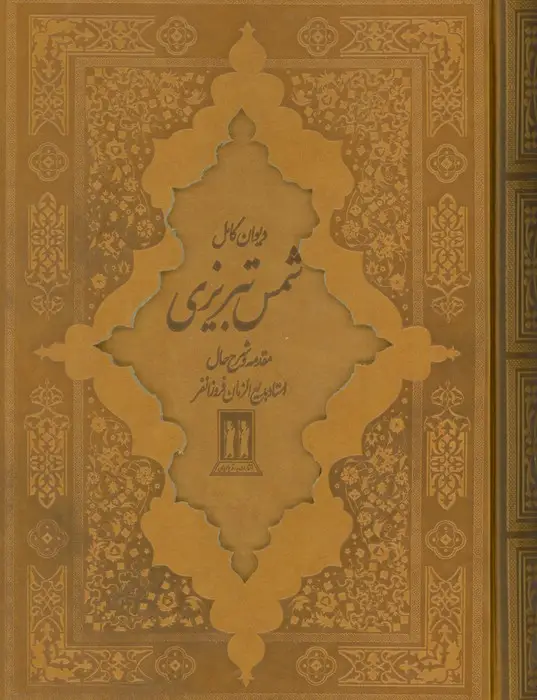 دیوان کامل
شمس تبریزی
مقدمه و شرح حال
استاد بدیع الزمان فروزانفر